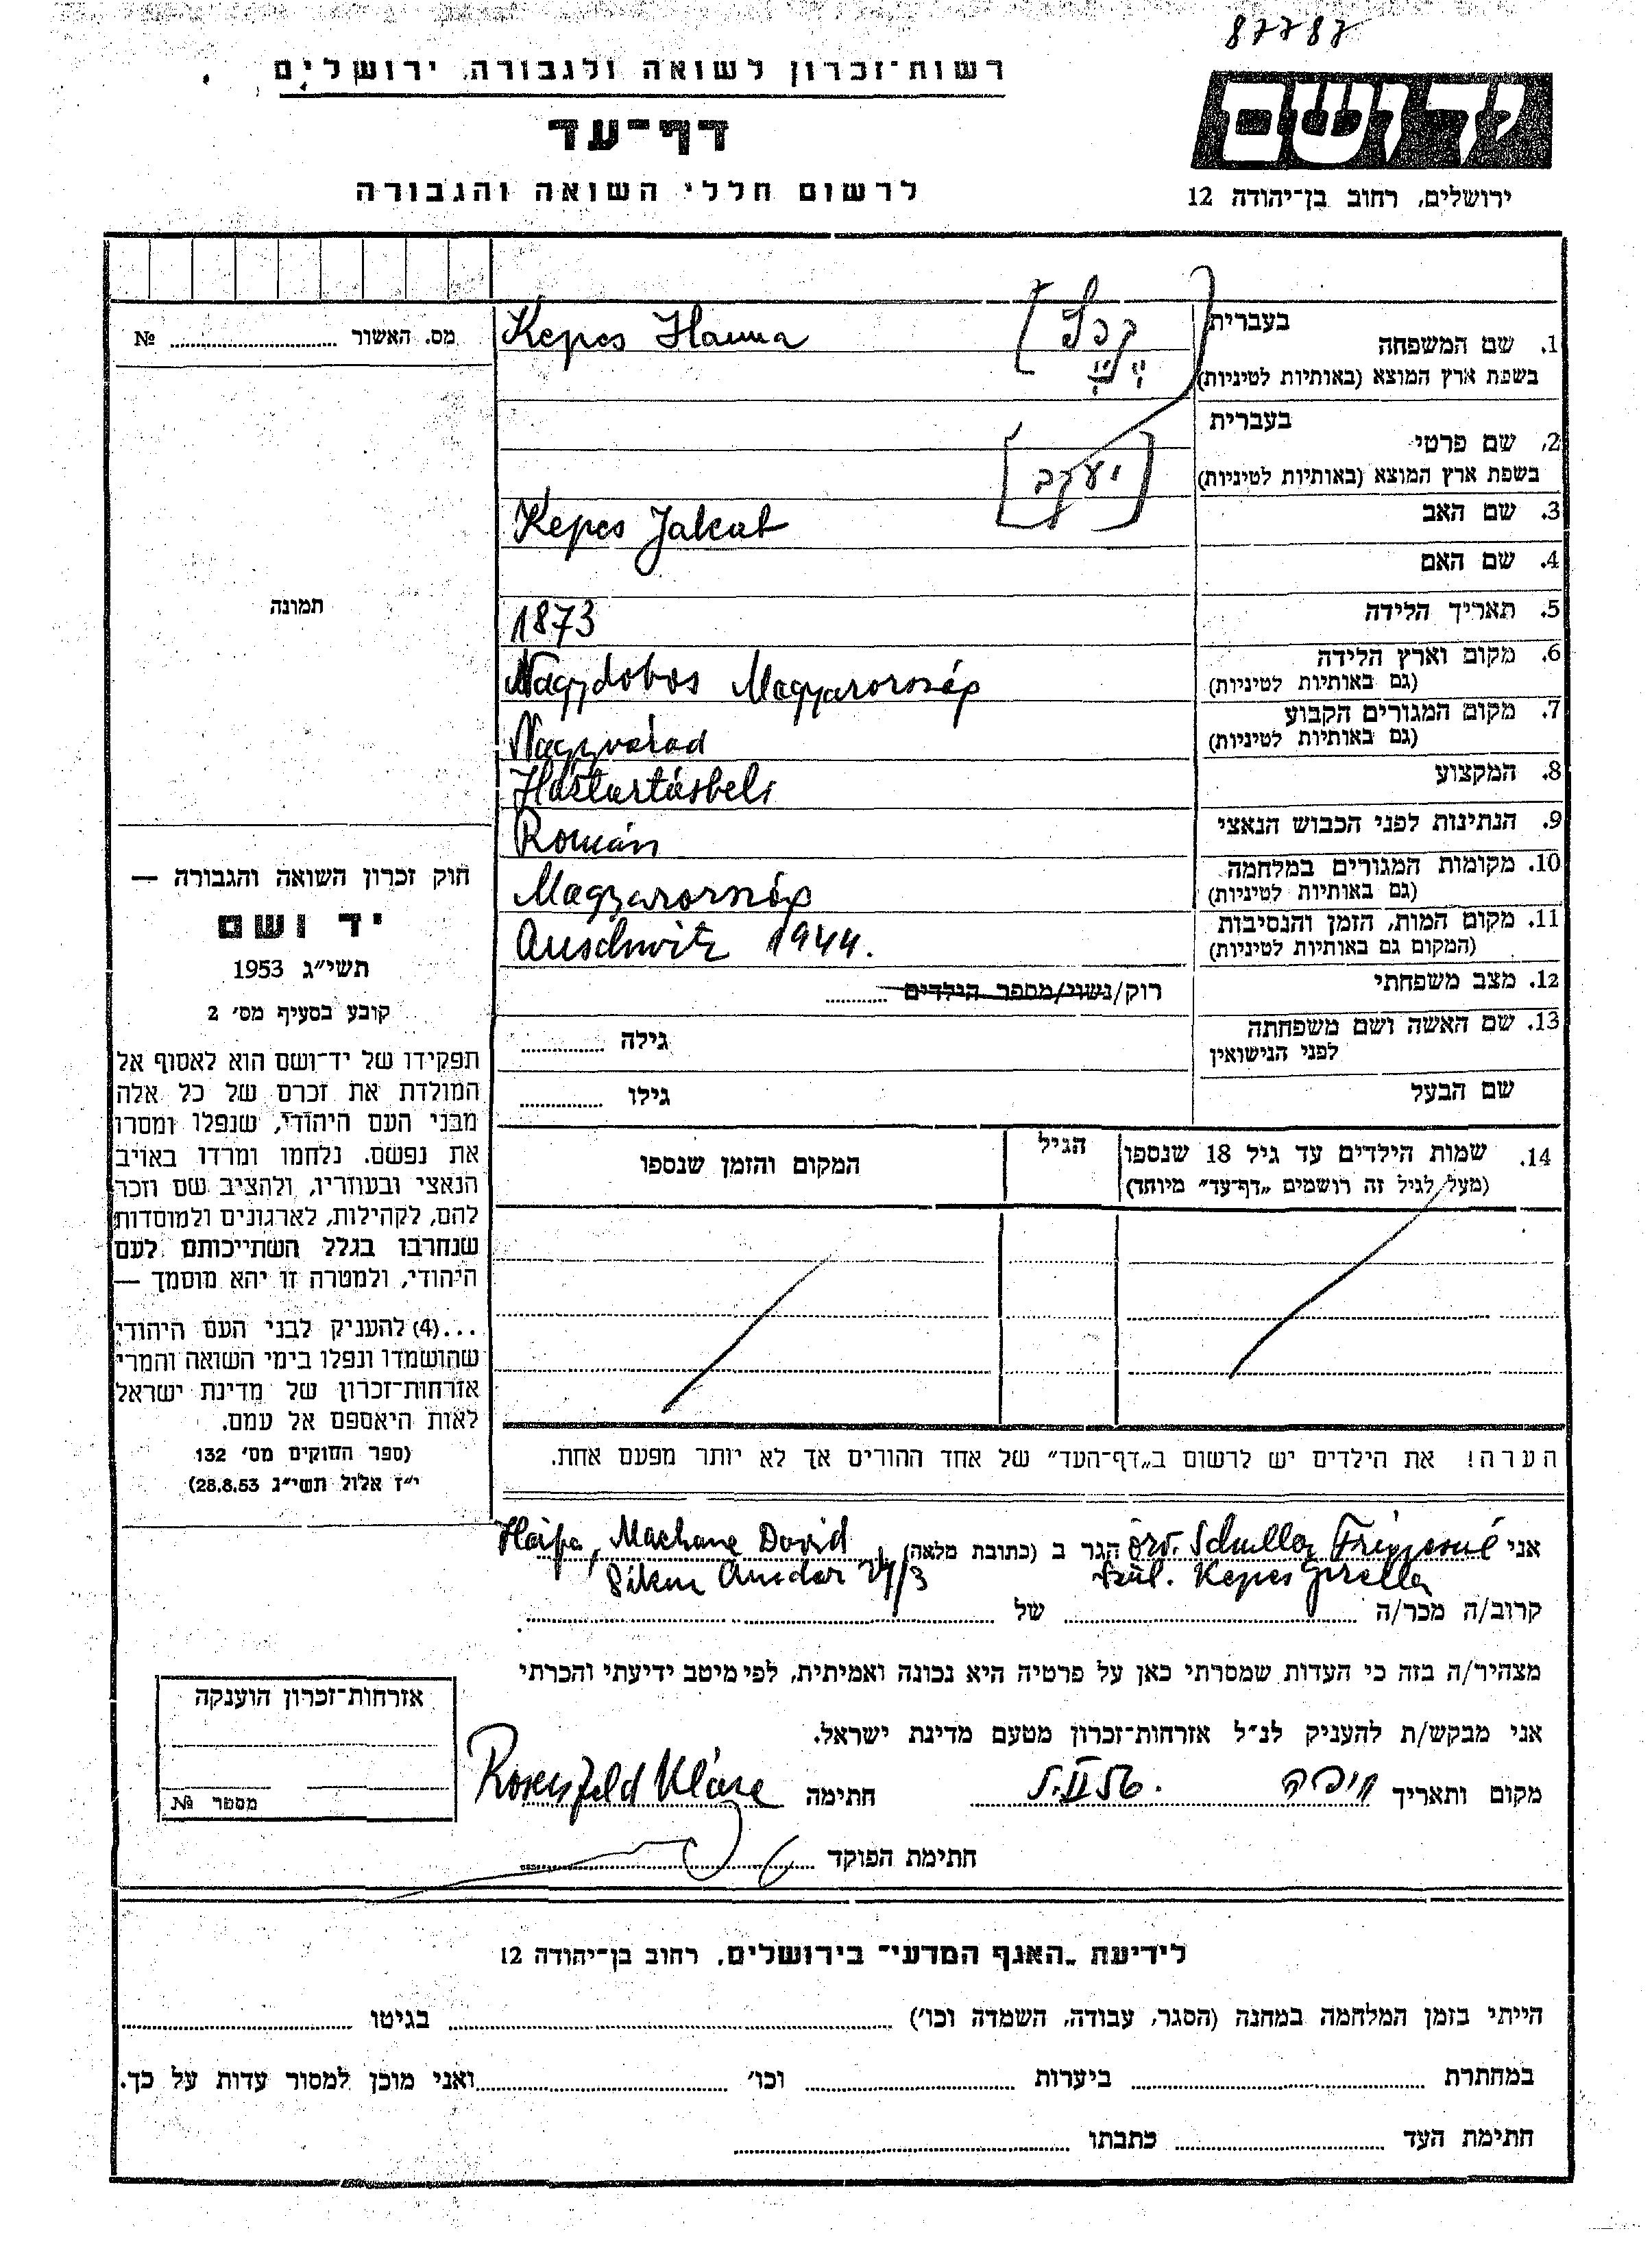 87787
רשות־זכרון לשואה ולגבורה, ירושלים
יד ושם
דף־עד
לרשום חללי השואה והגבורה
ירושלים, רחוב בן־יהודה 12
בעברית
1. שם המשפחה
בשפת ארץ המוצא (באותיות לטיניות)
Kepes Hanna
מס. האשור № 
בעברית
2. שם פרטי
בשפת ארץ המוצא (באותיות לטיניות)
[יעקב]
3. שם האב
Kepes Jakab
4. שם האם
תמונה
5. תאריך הלידה
1873
6. מקום וארץ הלידה
(גם באותיות לטיניות)
Nagydobos Magyarország
7. מקום המגורים הקבוע
(גם באותיות לטיניות)
Nagyvárad
8. המקצוע
Háztartásbeli
9. הנתינות לפני הכבוש הנאצי
Román
10. מקומות המגורים במלחמה
(גם באותיות לטיניות)
Magyarország
11. מקום המות, הזמן והנסיבות
(המקום גם באותיות לטיניות)
Auschwitz 1944.
12. מצב משפחתי
רוק/נשוי/מספר הילדים
13. שם האשה ושם משפחתה
לפני הנישואין
גילה
שם הבעל
גילו
14. שמות הילדים עד גיל 18 שנספו
(מעל לגיל זה רושמים „דף־עד” מיוחד)
הגיל
המקום והזמן שנספו
הערה! את הילדים יש לרשום ב„דף־העד” של אחד ההורים אך לא יותר מפעם אחת.
חוק זכרון השואה והגבורה —
יד ושם
תשי״ג 1953
קובע בסעיף מס׳ 2
תפקידו של יד־ושם הוא לאסוף אל
המולדת את זכרם של כל אלה
מבני העם היהודי, שנפלו ומסרו
את נפשם. נלחמו ומרדו באויב
הנאצי ובעוזריו, ולהציב שם וזכר
להם, לקהילות, לארגונים ולמוסדות
שנחרבו בגלל השתייכותם לעם
היהודי, ולמטרה זו יהא מוסמך —
...(4) להעניק לבני העם היהודי
שהושמדו ונפלו בימי השואה והמרי
אזרחות־זכרון של מדינת ישראל
לאות היאספם אל עמם.
(ספר החוקים מס׳ 132
י״ז אלול תשי״ג 28.8.53)
אני özv. Schuller הגר ב (כתובת מלאה) Haifa, Machane David
szül. Kepes Gizella
קרוב/ה מכר/ה של
מצהיר/ה בזה כי העדות שמסרתי כאן על פרטיה היא נכונה ואמיתית, לפי מיטב ידיעתי והכרתי
אני מבקש/ת להעניק לנ״ל אזרחות־זכרון מטעם מדינת ישראל.
מקום ותאריך חיפה חתימה Rosenfeld Klára
חתימת הפוקד
אזרחות־זכרון הוענקה
מספר №
לידיעת „האגף המדעי” בירושלים, רחוב בן־יהודה 12
הייתי בזמן המלחמה במחנה (הסגר, עבודה, השמדה וכו׳) בגיטו
במחתרת ביערות וכו׳ ואני מוכן למסור עדות על כך.
חתימת העד כתבתו